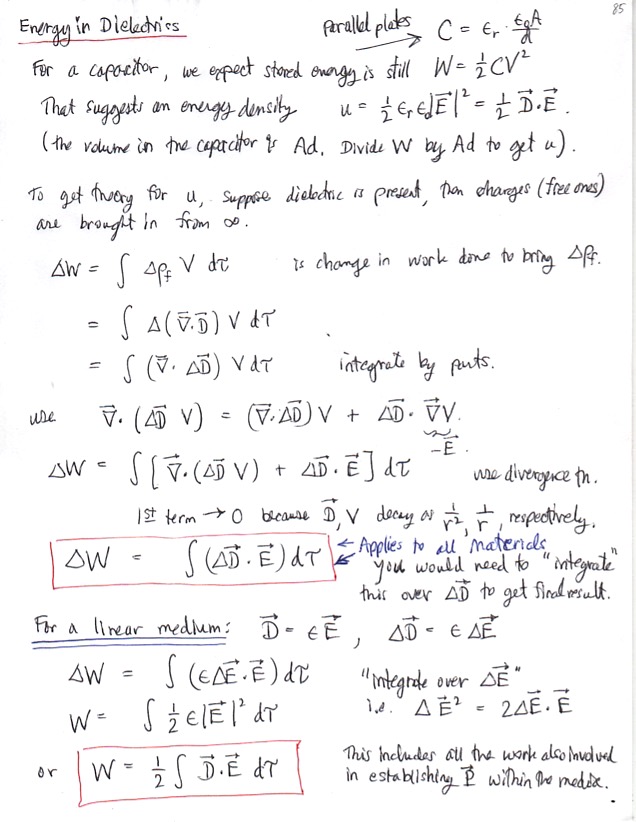 85
Energy in Dielectrics
Parallel plates → C = εr · ε0A/d
For a capacitor, we expect stored energy is still W = ½CV²
That suggests an energy density u = ½ εr ε0|E⃗|² = ½ D⃗·E⃗.
(the volume in the capacitor is Ad. Divide W by Ad to get u).
To get theory for u, suppose dielectric is present, then charges (free ones)
are brought in from ∞.
ΔW = ∫ Δρf V dτ is change in work done to bring Δρf.
= ∫ Δ(∇⃗·D⃗) V dτ
= ∫ (∇⃗·ΔD⃗) V dτ integrate by parts.
use ∇⃗·(ΔD⃗ V) = (∇⃗·ΔD⃗)V + ΔD⃗·∇⃗V.
-E⃗
ΔW = ∫[∇⃗·(ΔD⃗ V) + ΔD⃗·E⃗] dτ use divergence th.
1st term → 0 because D⃗, V decay as 1/r², 1/r, respectively.
ΔW = ∫(ΔD⃗·E⃗) dτ ← Applies to all Materials
← you would need to "integrate"
this over ΔD⃗ to get final result.
For a linear medium: D⃗ = εE⃗, ΔD⃗ = εΔE⃗
ΔW = ∫(εΔE⃗·E⃗) dτ "integrate over ΔE⃗"
W = ∫ ½ε|E⃗|² dτ i.e. ΔE⃗² = 2ΔE⃗·E⃗
or W = ½∫ D⃗·E⃗ dτ This includes all the work also involved
in establishing P⃗ within the media.